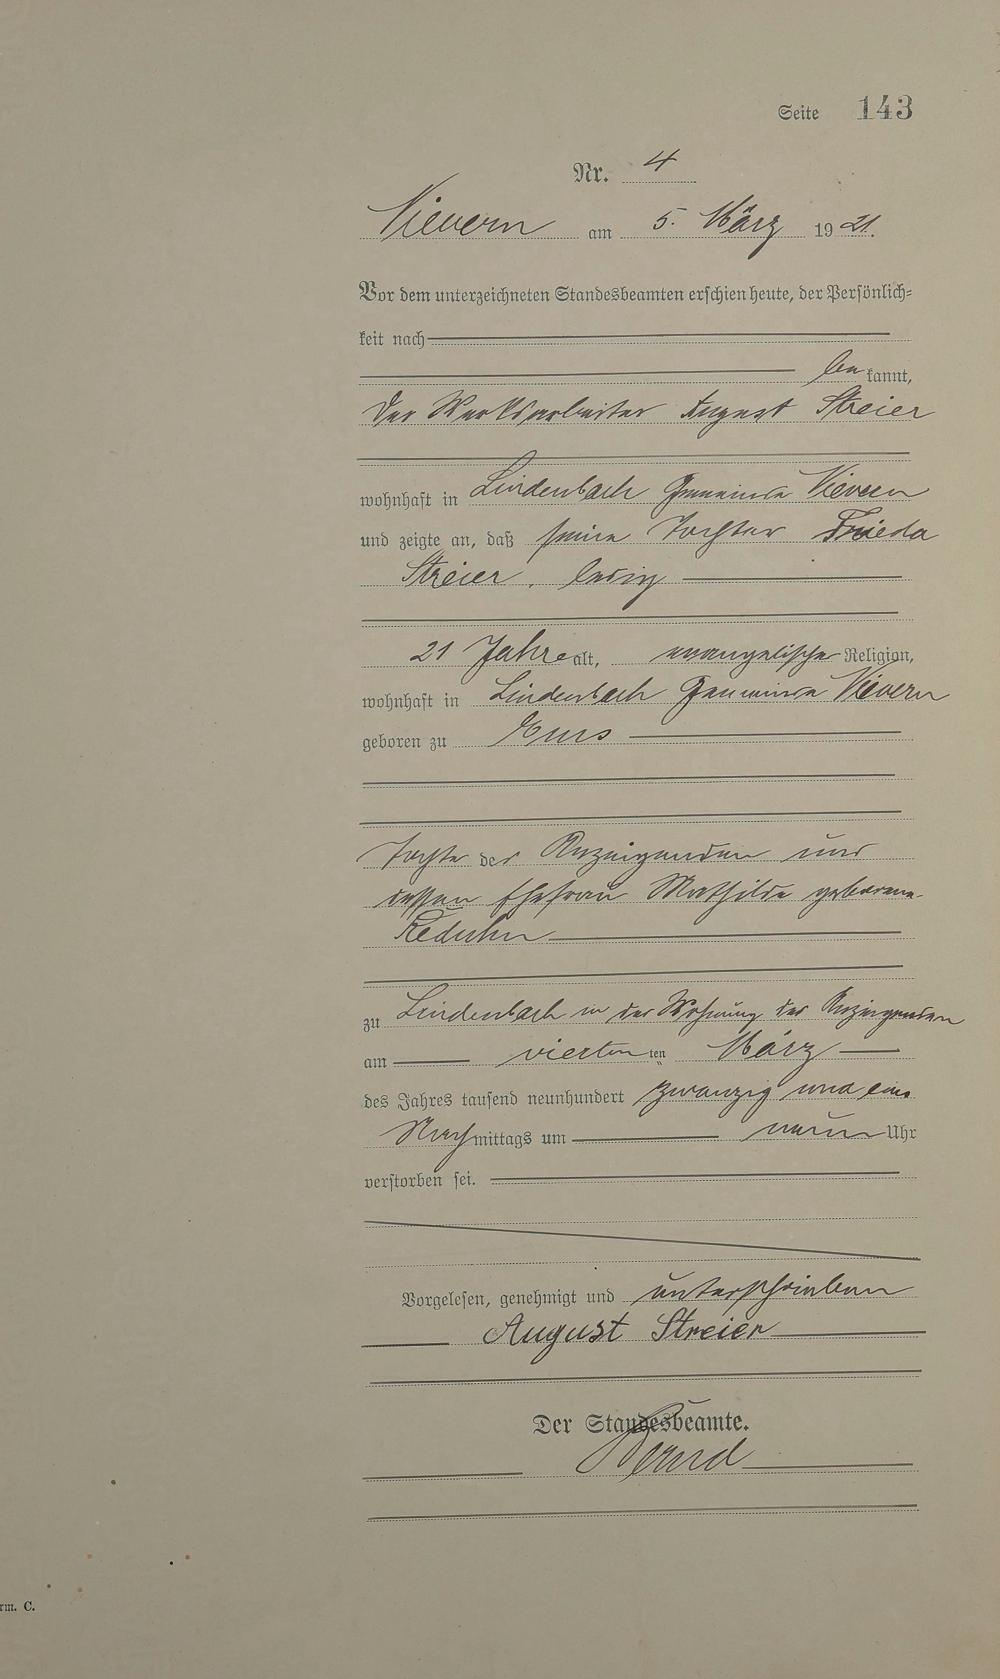 Seite 143
Nr. 4
Nievern am 5. März 1921.
Vor dem unterzeichneten Standesbeamten erschien heute, der Persönlich-
keit nach
be kannt,
der Werksarbeiter August Streier
wohnhaft in Lindenbach Gemeinde Nievern
und zeigte an, daß seine Tochter Frieda
Streier, ledig
21 Jahre alt, evangelischer Religion,
wohnhaft in Lindenbach Gemeinde Nievern
geboren zu Ems
Tochter des Anzeigenden und
dessen Ehefrau Mathilde geborene
Keduhn
zu Lindenbach in der Wohnung des Anzeigenden
am vierten ten März
des Jahres tausend neunhundert zwanzig und eins
Nachmittags um neun Uhr
verstorben sei.
Vorgelesen, genehmigt und unterschrieben
August Streier
Der Standesbeamte.
rm. C.